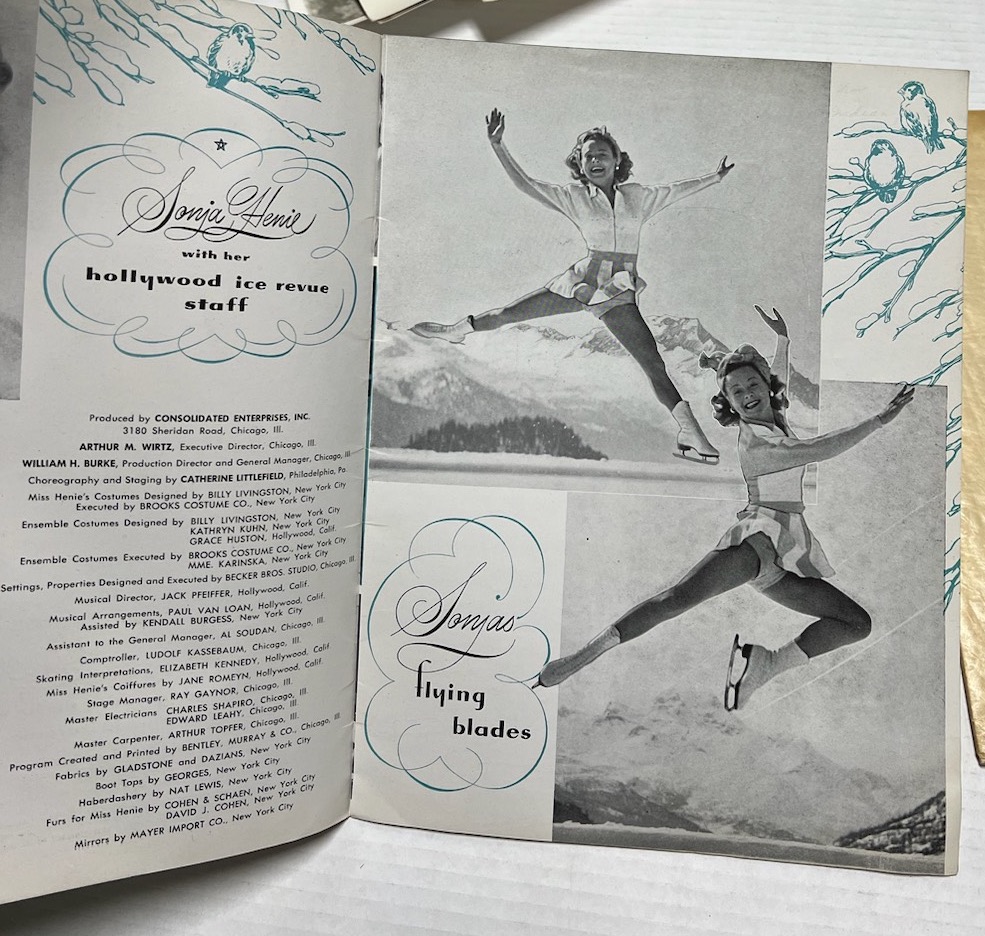 Sonja Henie
with her
hollywood ice revue
staff
Produced by CONSOLIDATED ENTERPRISES, INC.
3180 Sheridan Road, Chicago, Ill.
ARTHUR M. WIRTZ, Executive Director, Chicago, Ill.
WILLIAM H. BURKE, Production Director and General Manager, Chicago, Ill.
Choreography and Staging by CATHERINE LITTLEFIELD, Philadelphia, Pa.
Miss Henie's Costumes Designed by BILLY LIVINGSTON, New York City
Executed by BROOKS COSTUME CO., New York City
Ensemble Costumes Designed by BILLY LIVINGSTON, New York City
KATHRYN KUHN, New York City
GRACE HUSTON, Hollywood, Calif.
Ensemble Costumes Executed by BROOKS COSTUME CO., New York City
MME. KARINSKA, New York City
Settings, Properties Designed and Executed by BECKER BROS. STUDIO, Chicago, Ill.
Musical Director, JACK PFEIFFER, Hollywood, Calif.
Musical Arrangements, PAUL VAN LOAN, Hollywood, Calif.
Assisted by KENDALL BURGESS, New York City
Assistant to the General Manager, AL SOUDAN, Chicago, Ill.
Comptroller, LUDOLF KASSEBAUM, Chicago, Ill.
Skating Interpretations, ELIZABETH KENNEDY, Hollywood, Calif.
Miss Henie's Coiffures by JANE ROMEYN, Hollywood, Calif.
Stage Manager, RAY GAYNOR, Chicago, Ill.
Master Electricians CHARLES SHAPIRO, Chicago, Ill.
EDWARD LEAHY, Chicago, Ill.
Master Carpenter, ARTHUR TOPFER, Chicago, Ill.
Program Created and Printed by BENTLEY, MURRAY & CO., Chicago, Ill.
Fabrics by GLADSTONE and DAZIANS, New York City
Boot Tops by GEORGES, New York City
Haberdashery by NAT LEWIS, New York City
Furs for Miss Henie by COHEN & SCHAEN, New York City
DAVID J. COHEN, New York City
Mirrors by MAYER IMPORT CO., New York City
Sonjas'
flying
blades